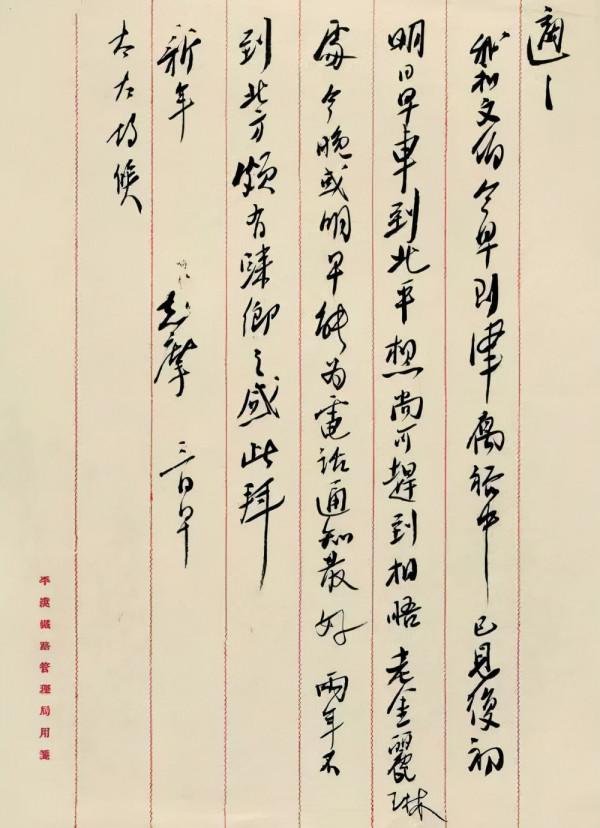 適之
我和文伯今早到津寓裕中 已見復初
明日早車到北平想尚可趕到相晤老金麗琳
處今晚或明早能為電話通知最好 兩年不
到北方頗有歸鄉之感此拜
新年
志摩 三日早
太太均候
平漢鐵路管理局用箋